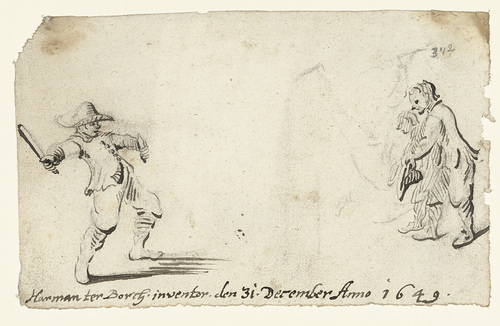 342
Harman ter Borch · inventor · den 31 · December Anno 1649 ·